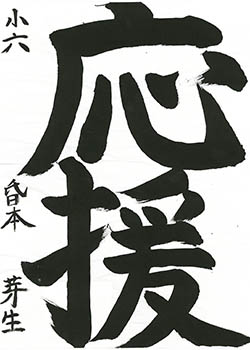 応援
小六
昏本 芽生